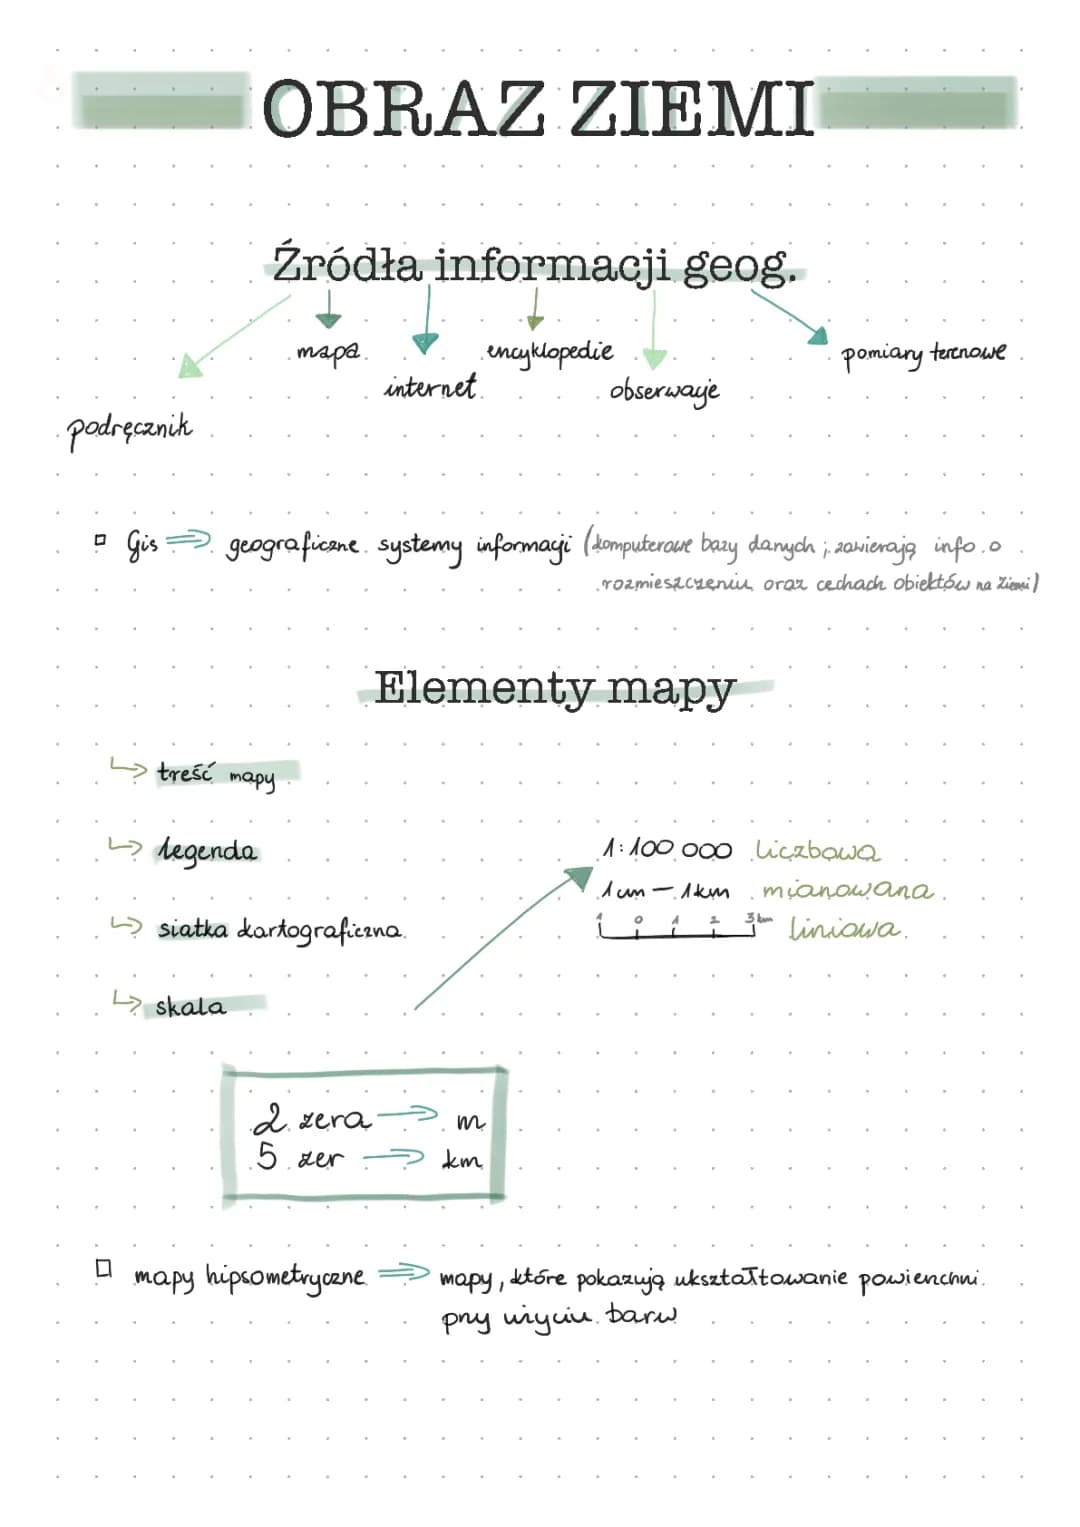 OBRAZ ZIEMI
Źródła informacji geog.
mapa
encyklopedie
pomiary terenowe
internet
obserwacje
podręcznik
Gis ⇒ geograficzne systemy informacji (komputerowe bazy danych; zawierają info. o
rozmieszczeniu oraz cechach obiektów na Ziemi)
Elementy mapy
↳ treść mapy
↳ legenda
1:100 000 liczbowa
1cm – 1km mianowana
↳ siatka kartograficzna
1 0 1 2 3 km liniowa
↳ skala
2 zera ⇒ m
5 zer ⇒ km
mapy hipsometryczne ⇒ mapy, które pokazują ukształtowanie powierzchni
przy użyciu barw